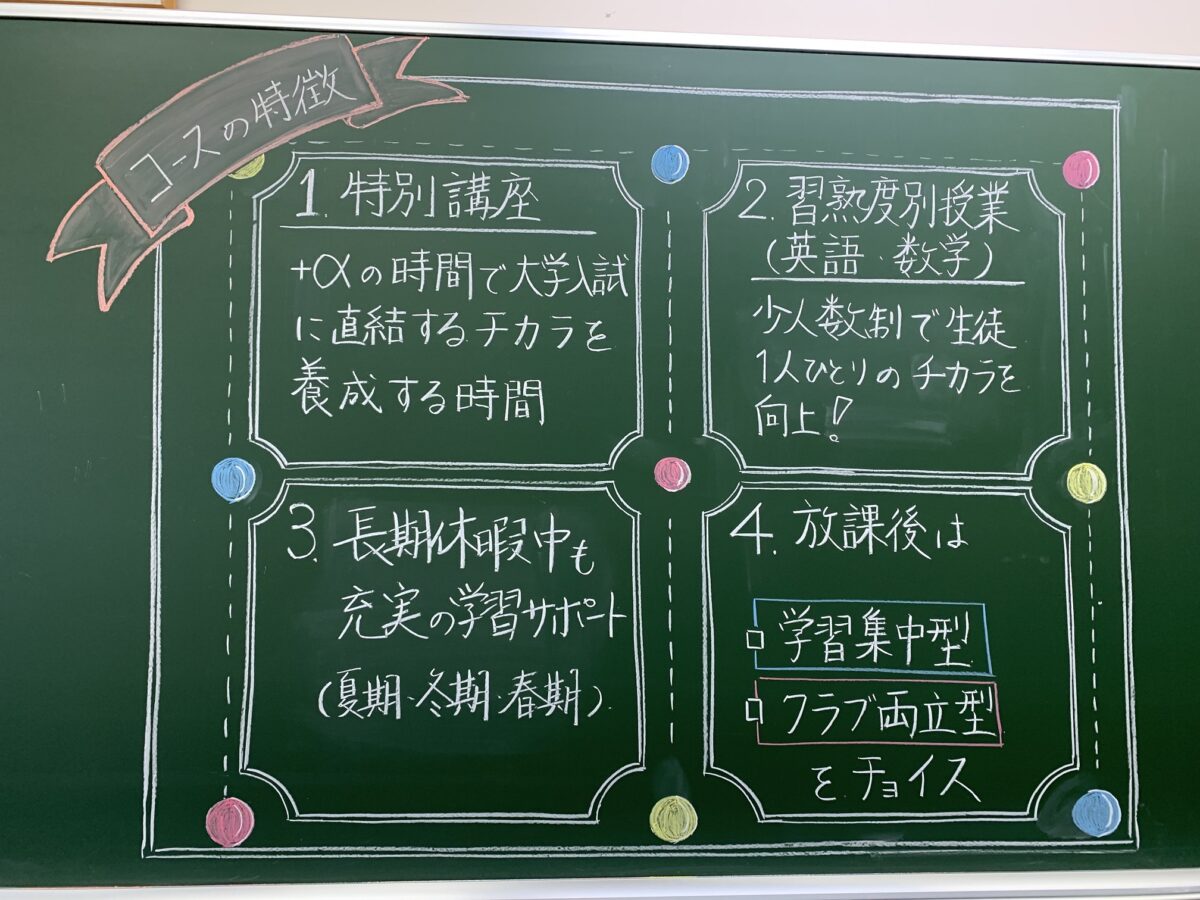 コースの特徴
1. 特別講座
+αの時間で大学入試
に直結するチカラを
養成する時間
2. 習熟度別授業
(英語・数学)
少人数制で生徒
1人ひとりのチカラを
向上!
3. 長期休暇中も
充実の学習サポート
(夏期・冬期・春期)
4. 放課後は
学習集中型
クラブ両立型
をチョイス